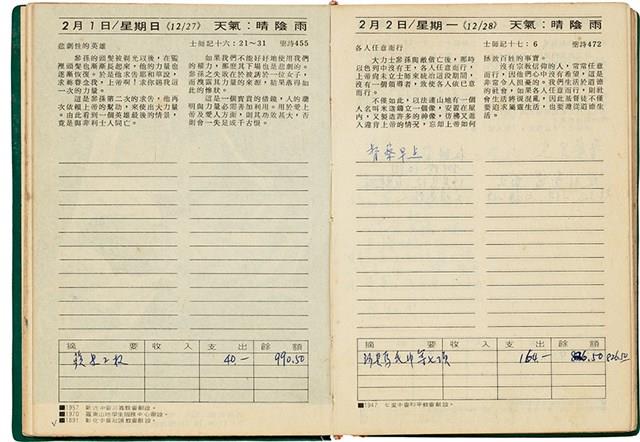 2月1日/星期日(12/27) 天氣:晴陰雨
悲劇性的英雄 士師記十六:21～31 聖詩455
參孫的頭髮被剃光以後,在監
獄頭髮也漸漸長起來,他的力量也
逐漸恢復。於是他求告耶和華說,
求祢眷念我,上帝啊!求你賜我這
一次的力量。
這是參孫第二次的求告,他再
次依賴上帝的幫助,來使出大力量
。由此看到一個英雄最後的情景,
竟是與非利士人同亡。
如果我們不能好好地使用我們
的權力,那麼其下場也是悲劇的。
參孫之失敗在於被誘於一位女子,
而洩露其力量的來源,結果落得如
此的慘狀。
這是一個寶貴的借鏡,人的聰
明與力量必需善加利用,用於愛上
帝及愛人方面,則其功效甚大,否
則會一失足成千古恨。
摘要 收入 支出 餘額
40— 990.50
■1957
■1970
■1891
2月2日/星期一(12/28) 天氣:晴陰雨
各人任意而行 士師記十七:6 聖詩472
大力士參孫與敵偕亡後,那時
以色列中沒有王,各人任意而行,
上帝尚未立士師來統治這段期間,
沒有一個領導者,致使各人依己意
而行。
不僅如此,以法蓮山地有一個
人名叫米迦鑄立一個像,安置在屋
內,又製造許多的神像,彷彿又進
入違背上帝的情況,忘却上帝如何
拯救百姓的事實。
沒有宗教信仰的人,常常任意
而行,因他們心中沒有希望,這是
非常令人擔憂的。我們生活於道德
的社會,如果各人任意而行,則社
會生活將很混亂,因此基督徒不僅
要追求屬靈生活,也要遵從道德生
活。
早点
摘要 收入 支出 餘額
164— 826.50 826.50
■1947